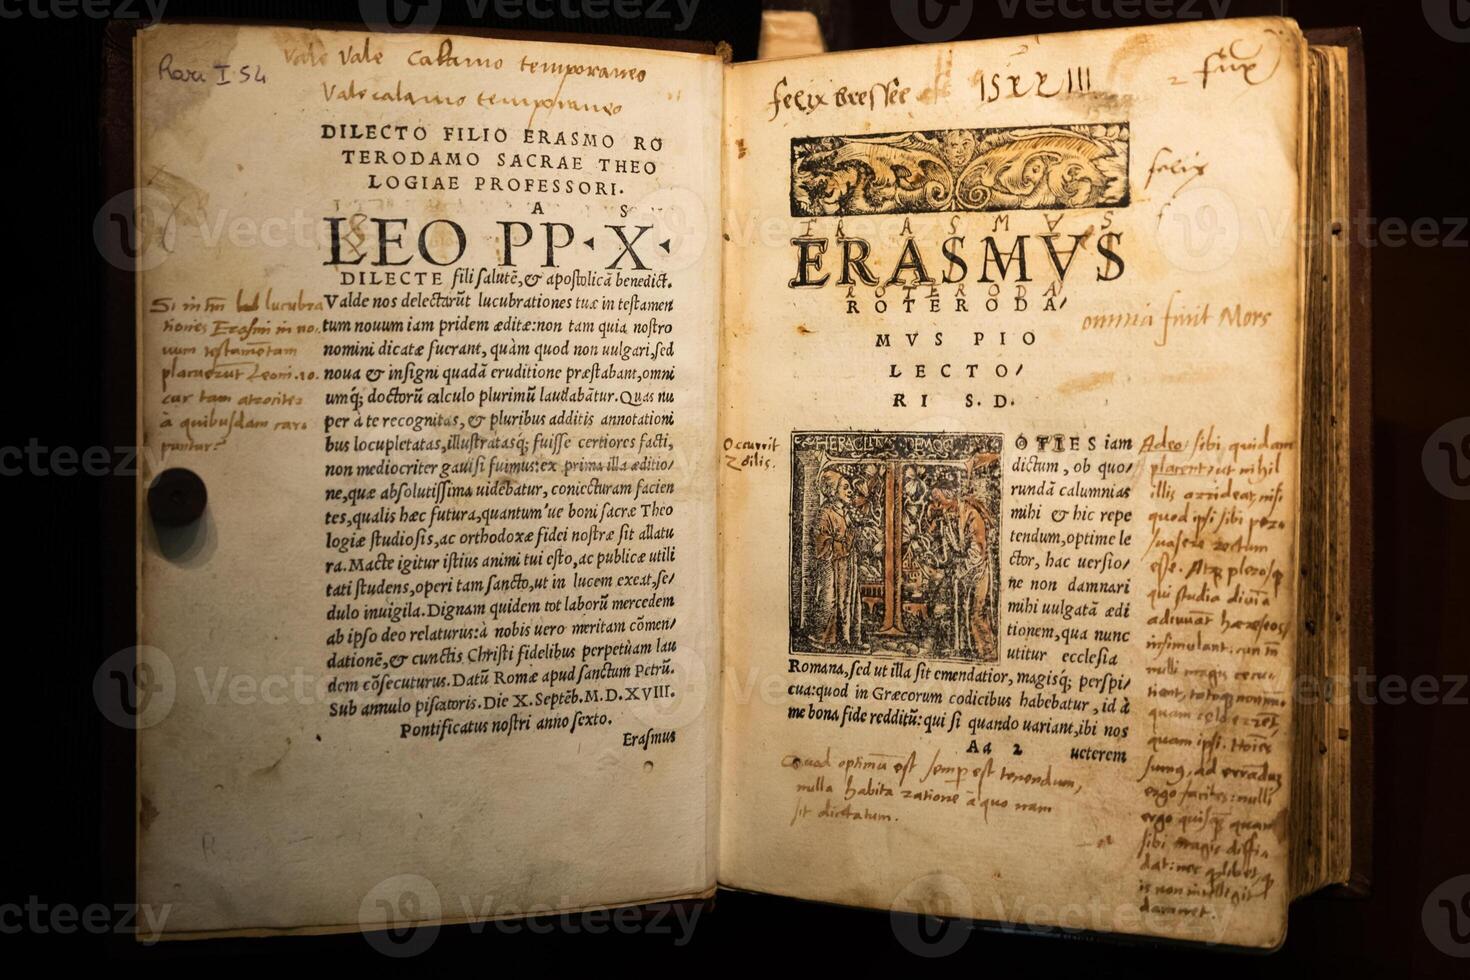 Rari I. 54
Vale Vale Calamo temporaneo
Vale calamo temporaneo
DILECTO FILIO ERASMO RO
TERODAMO SACRAE THEO
LOGIAE PROFESSORI.
A S
LEO PP. X.
DILECTE fili salutē, & apostolicā benedict.
Valde nos delectarūt lucubrationes tuæ in testamen
tum nouum iam pridem æditæ: non tam quia nostro
nomini dicatæ fuerant, quàm quod non uulgari, sed
noua & insigni quadā eruditione præstabant, omni
umq; doctorū calculo plurimū laudabātur. Quas nu
per à te recognitas, & pluribus additis annotationi
bus locupletatas, illustratasq; fuisse certiores facti,
non mediocriter gauisi fuimus: ex prima illa æditio/
ne, quæ absolutissima uidebatur, coniecturam facien
tes, qualis hæc futura, quantum'ue boni sacræ Theo
logiæ studiosis, ac orthodoxæ fidei nostræ sit allatu
ra. Macte igitur istius animi tui esto, ac publicæ utili
tati studens, operi tam sancto, ut in lucem exeat, se/
dulo inuigila. Dignam quidem tot laborū mercedem
ab ipso deo relaturus: à nobis uero meritam cōmen/
dationē, & cunctis Christi fidelibus perpetuam lau
dem cōsecuturus. Datū Romæ apud sanctum Petrū.
Sub annulo piscatoris. Die X. Septēb. M. D. XVIII.
Pontificatus nostri anno sexto.
Erasmus
Si in lucubra
tiones Erasmi in no
uum testamētam
placuerūt Leoni .10.
cur tam atrociter
à quibusdam car
puntur?
felix bressee 15XXIII
felix
ERASMVS
ERASMVS
RODA
ROTERODA/
MVS PIO
LECTO/
RI S. D.
omnia finit Mors
Occurrit
Zoilis.
HERACLITVS DEMOCRITVS
OTIES iam
dictum, ob quo/
rundā calumnias
mihi & hic repe
tendum, optime le
ctor, hac uersio/
ne non damnari
mihi uulgatā ædi
tionem, qua nunc
utitur ecclesia
Romana, sed ut illa sit emendatior, magisq; perspi/
cua: quod in Græcorum codicibus habebatur, id à
me bona fide redditū: qui si quando uariant, ibi nos
Aa 2 ueterem
Quod optimū est semp est tenendum,
nulla habita ratione à quo nam
sit dictatum.
Adeo sibi quidam
placent, ut nihil
illis arrideat, nisi
quod ipsi sibi per
suasere rectum
esse.
qui studia